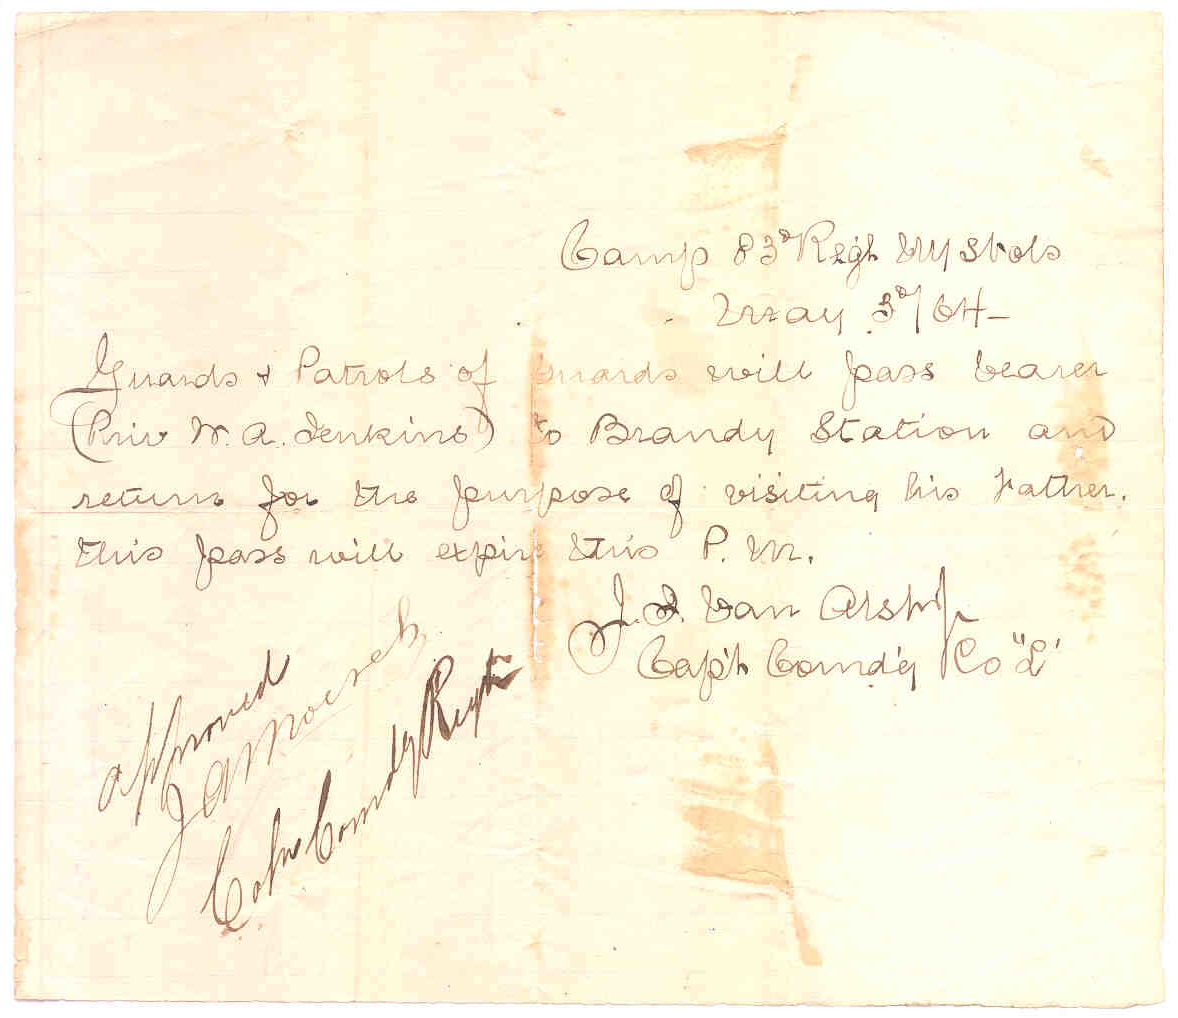 Camp 83d Regt NY S Vols
May 3d/64-
Guards & Patrols of Guards will pass bearer
(Priv W. A. Jenkins) to Brandy Station and
return for the purpose of visiting his Father.
this pass will expire this P. M.
J. S. Van
Capt Comd'g Co "L"
approved
J A Moesch
Col Comdg Regt